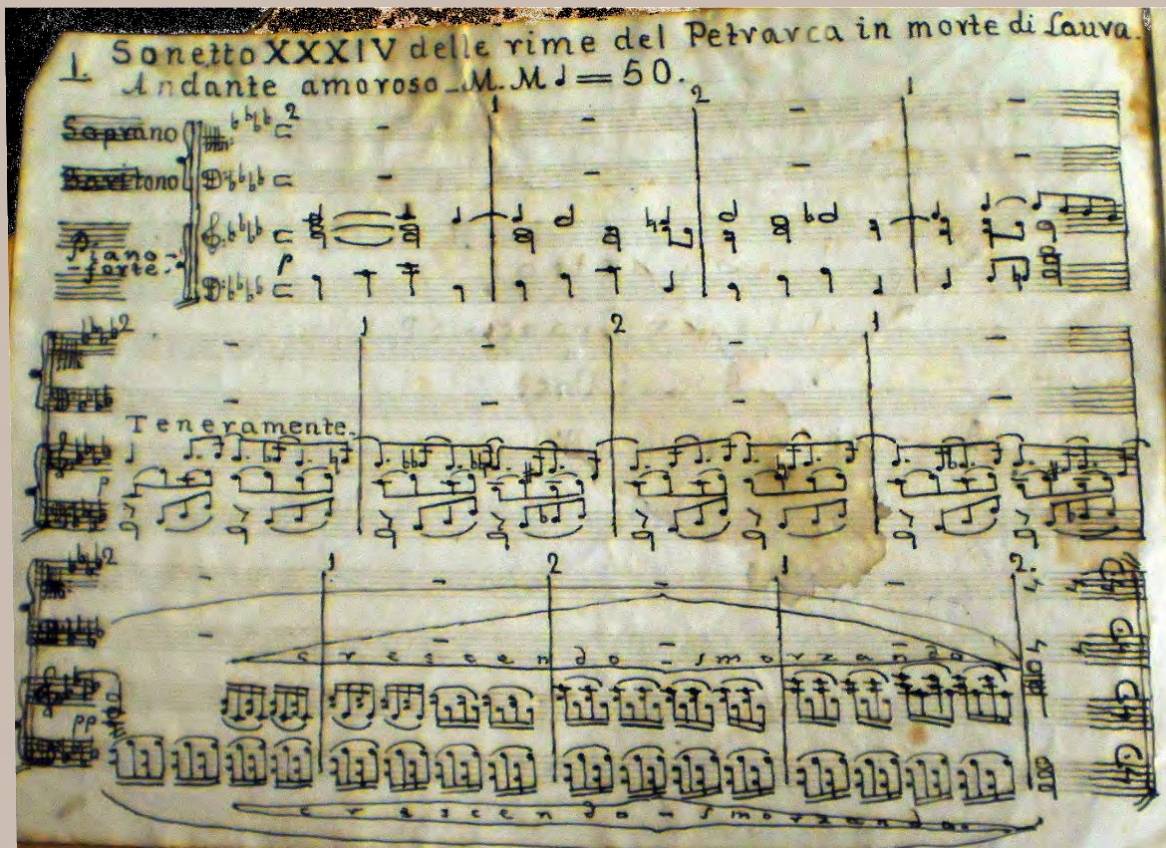 1. Sonetto XXXIV delle rime del Petrarca in morte di Laura.
Andante amoroso_M.M ♩=50.
2 1 2 1
Soprano
Baritono
Piano-
-forte.
p
2 1 2 1
Teneramente.
p
2 1 2 1 2.
crescendo - smorzando
pp
crescendo - smorzando